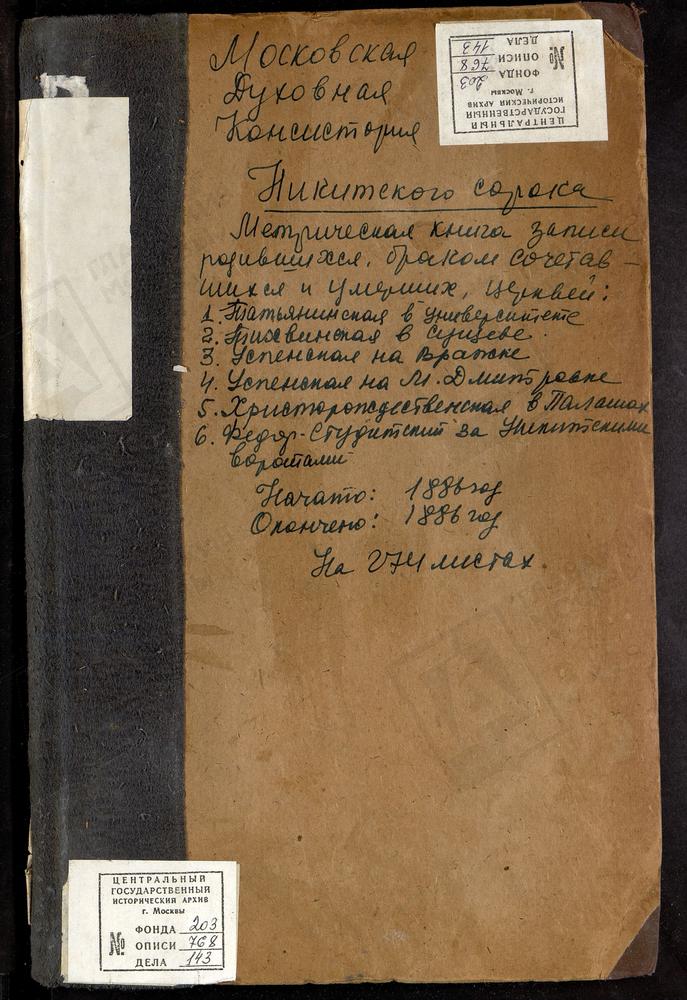 Московская
Духовная
Консистория
ЦЕНТРАЛЬНЫЙ
ГОСУДАРСТВЕННЫЙ
ИСТОРИЧЕСКИЙ АРХИВ
г. Москвы
№
ФОНДА 203
ОПИСИ 768
ДЕЛА 143
Никитского сорока
Метрическая книга записи
родившихся, браком сочетав-
шихся и умерших, церквей:
1. Татьянинская в университете
2. Тихвинская в Сущеве.
3. Успенская на Вражке
4. Успенская на М. Дмитровке
5. Христорождественская в Палашах
6. Федор-Студитский за Никитскими
воротами
Начато: 1886 год
Окончено: 1886 год
На 274 листах.
ЦЕНТРАЛЬНЫЙ
ГОСУДАРСТВЕННЫЙ
ИСТОРИЧЕСКИЙ АРХИВ
г. Москвы
№
ФОНДА 203
ОПИСИ 768
ДЕЛА 143